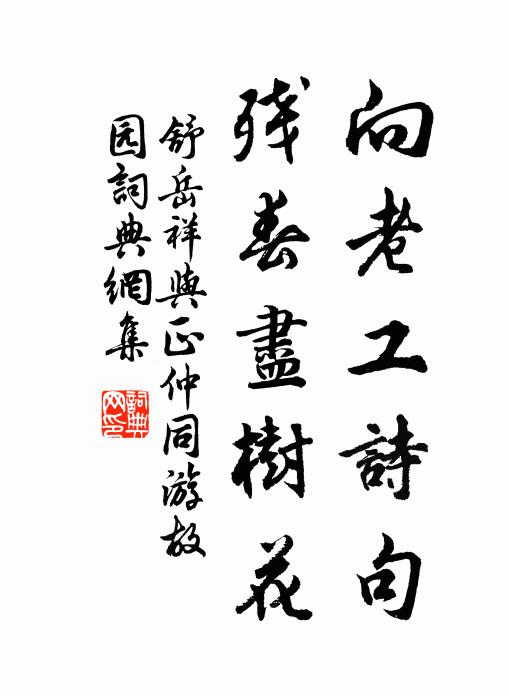 向老工詩句
残春盡樹花
舒岳祥與正仲同游故
园詞典網集
詞典网印